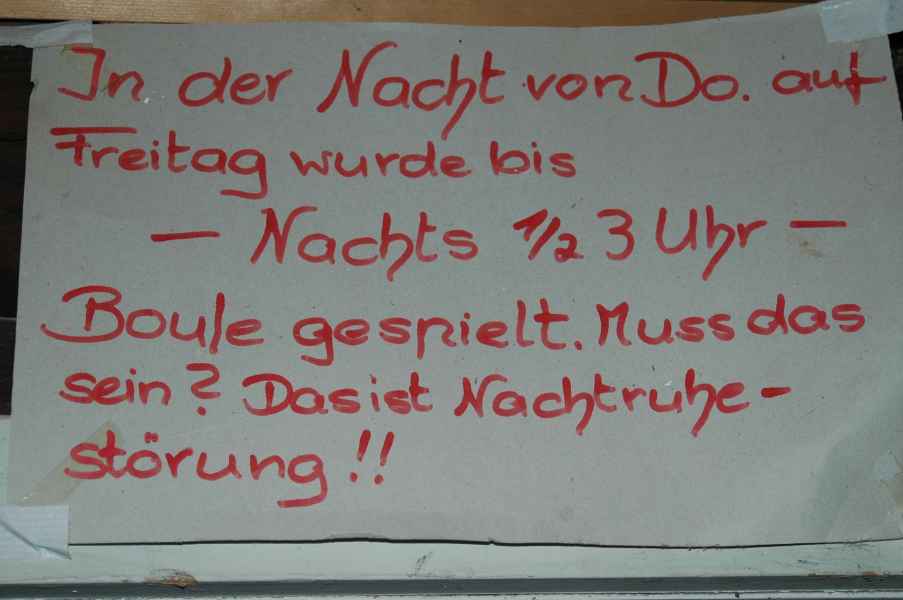 In der Nacht von Do. auf
Freitag wurde bis
— Nachts 1/2 3 Uhr —
Boule gespielt. Muss das
sein? Das ist Nachtruhe-
störung!!